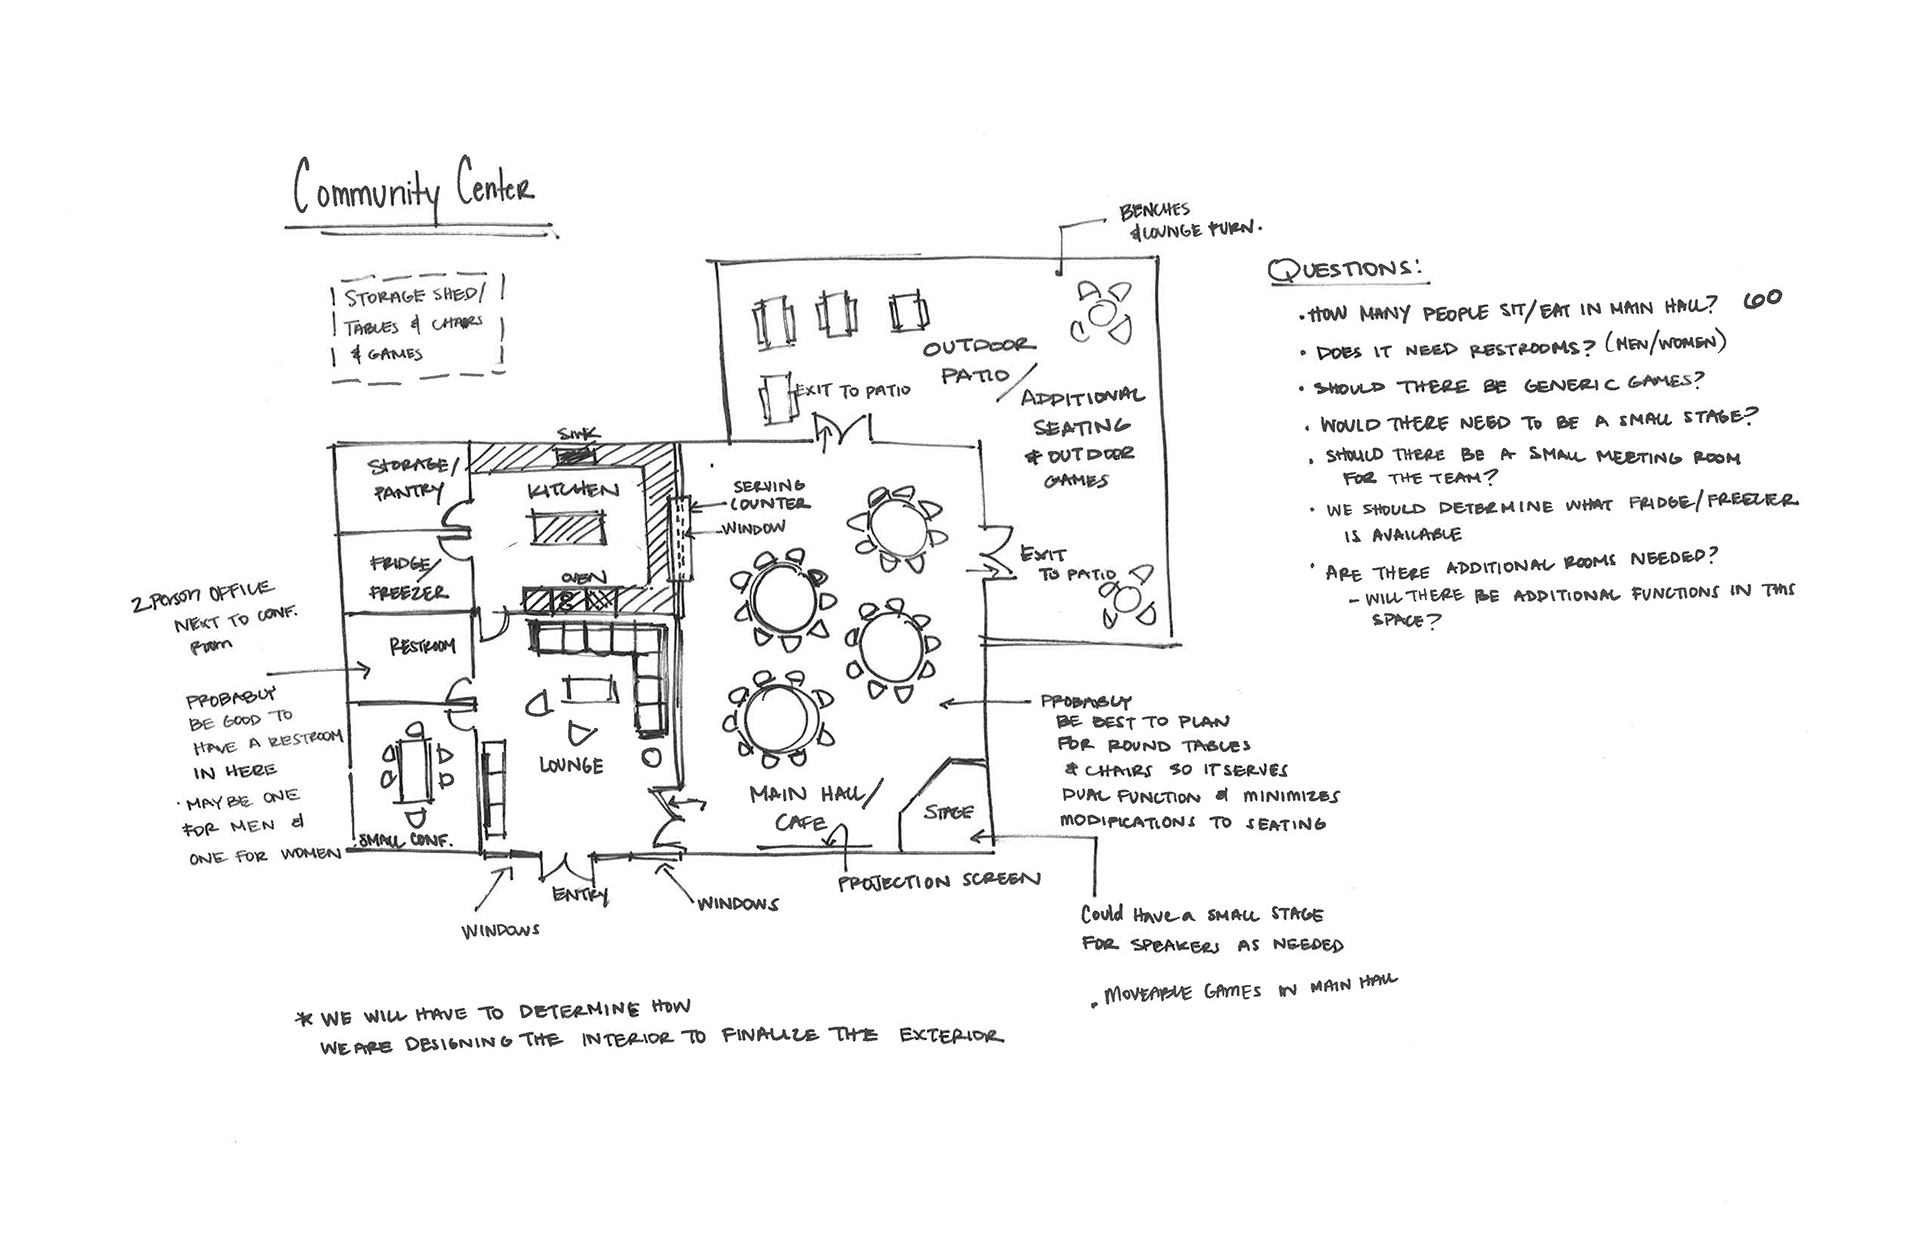 Community Center
STORAGE SHED/
TABLES & CHAIRS
& GAMES
BENCHES
& LOUNGE FURN.
OUTDOOR
PATIO/
ADDITIONAL
SEATING
& OUTDOOR
GAMES
EXIT TO PATIO
EXIT
TO PATIO
SINK
STORAGE/
PANTRY
KITCHEN
SERVING
COUNTER
WINDOW
FRIDGE/
FREEZER
OVEN
RESTROOM
LOUNGE
SMALL CONF.
MAIN HALL/
CAFE
STAGE
PROJECTION SCREEN
ENTRY
WINDOWS
WINDOWS
2 PERSON OFFICE
NEXT TO CONF.
ROOM
PROBABLY
BE GOOD TO
HAVE A RESTROOM
IN HERE
· MAYBE ONE
FOR MEN &
ONE FOR WOMEN
PROBABLY
BE BEST TO PLAN
FOR ROUND TABLES
& CHAIRS SO IT SERVES
DUAL FUNCTION & MINIMIZES
MODIFICATIONS TO SEATING
Could HAVE a SMALL STAGE
FOR SPEAKERS AS NEEDED
· MOVEABLE GAMES IN MAIN HALL
* WE WILL HAVE TO DETERMINE HOW
WE ARE DESIGNING THE INTERIOR TO FINALIZE THE EXTERIOR
QUESTIONS:
· HOW MANY PEOPLE SIT/EAT IN MAIN HALL? 60
· DOES IT NEED RESTROOMS? (MEN/WOMEN)
· SHOULD THERE BE GENERIC GAMES?
· WOULD THERE NEED TO BE A SMALL STAGE?
· SHOULD THERE BE A SMALL MEETING ROOM
FOR THE TEAM?
· WE SHOULD DETERMINE WHAT FRIDGE/FREEZER
IS AVAILABLE
· ARE THERE ADDITIONAL ROOMS NEEDED?
- WILL THERE BE ADDITIONAL FUNCTIONS IN THIS
SPACE?